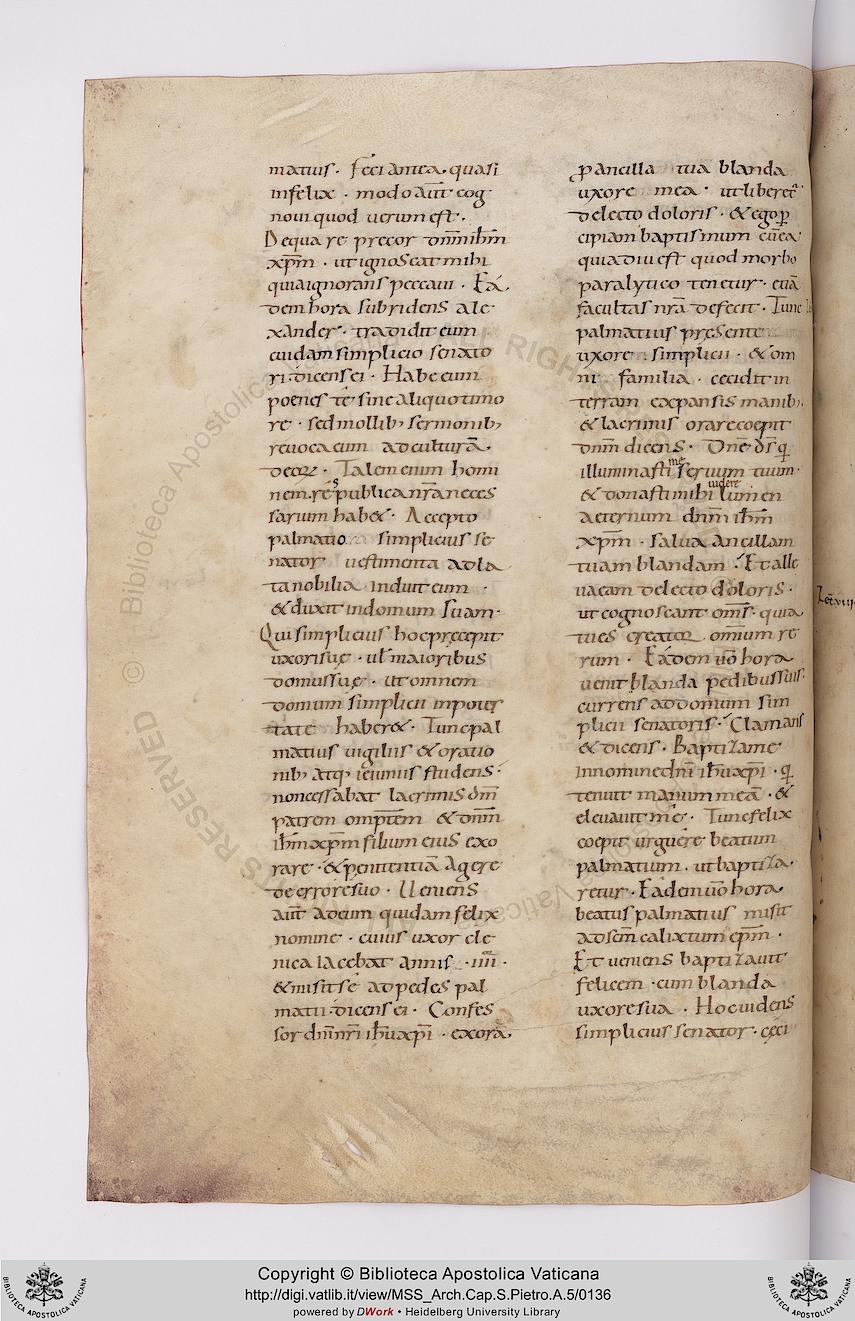 matius· Feci antea, quasi
infelix · modo aūt cog
noui quod uerum est·,
Dequa re precor dnm̄ ihm̄
xpm̄ · ut ignoscat mihi
quia ignorans peccaui · Eā
dem hora subridens ale
xander· tradidit eum
cuidam simplicio senato
ri· dicens ei · Habe eum
penes te sine aliquo timo
re · sed mollib; sermonib;
reuoca eum ad culturā·
deoꝝ · Talem enim homi
nem resˋpublica nrā neces
sarium hab&· Accepto
palmatio simplicius se
nator uestimenta adla
ta nobilia induit eum ·
& duxit in domum suam·
Qui simplicius hoc precepit
uxori suę · ut̄ maioribus
domus suę · ut omnem
domum simplicii in potes
tate haber&· Tunc pal
matius uigiliis & oratio
nib; atq; ieiuniis studens·
non cessabat lacrimis dm̄
patrem omptēm & dnm̄
ihm̄ xpm̄ filium eius exo
rare · & penitentiā agere
de errore suo · Ueniens
aūt ad eum quidam felix
nomine · cuius uxor cle
nica iacebat annis ·iiii·
& misit se ad pedes pal
matii · dicens ei · Confes
sor dnī nrī ihū xpī · exora,
ꝓ ancilla tua blanda
uxore mea · ut liberet̄
de lecto doloris · & ego ꝑ
cipiam baptismum cū ea·
quia diu est quod morbo
paralytico tenetur· etiā
facultas nrā defecit· Tunc
palmatius presente
uxore · simplicii · & om
ni familia · cecidit in
terram expansis manib;
& lacrimis orare coepit
dnm̄ dicens · Dnē ds̄ q̄
illuminasti ˋmeˊ seruum tuum·
& donasti mihi ˋuidereˊ lumen
aeternum dnm̄ ihm̄
xpm̄ · salua ancillam
tuam blandam · Et alle
ua eam de lecto doloris ·
ut cognoscant omīs · quia
tu es creatoꝝ omnium re
rum · Eādem uō hora
uenit blanda pedibus suis·
currens ad domum sim
plicii senatoris· Clamans
& dicens · Baptiza me·
in nomine dnī ihū xpī · q̄
tenuit manum meā · &
eleuauit me · Tunc felix
coepit urguere beatum
palmatium · ut baptiza
retur · Eadem uō hora
beatus palmatius misit
ad scm̄ calixtum epm̄ ·
Et ueniens baptizauit
felicem · cum blanda
uxore sua · Hoc uidens
simplicius senator · ceci
Copyright © Biblioteca Apostolica Vaticana
http://digi.vatlib.it/view/MSS_Arch.Cap.S.Pietro.A.5/0136
powered by DWork • Heidelberg University Library